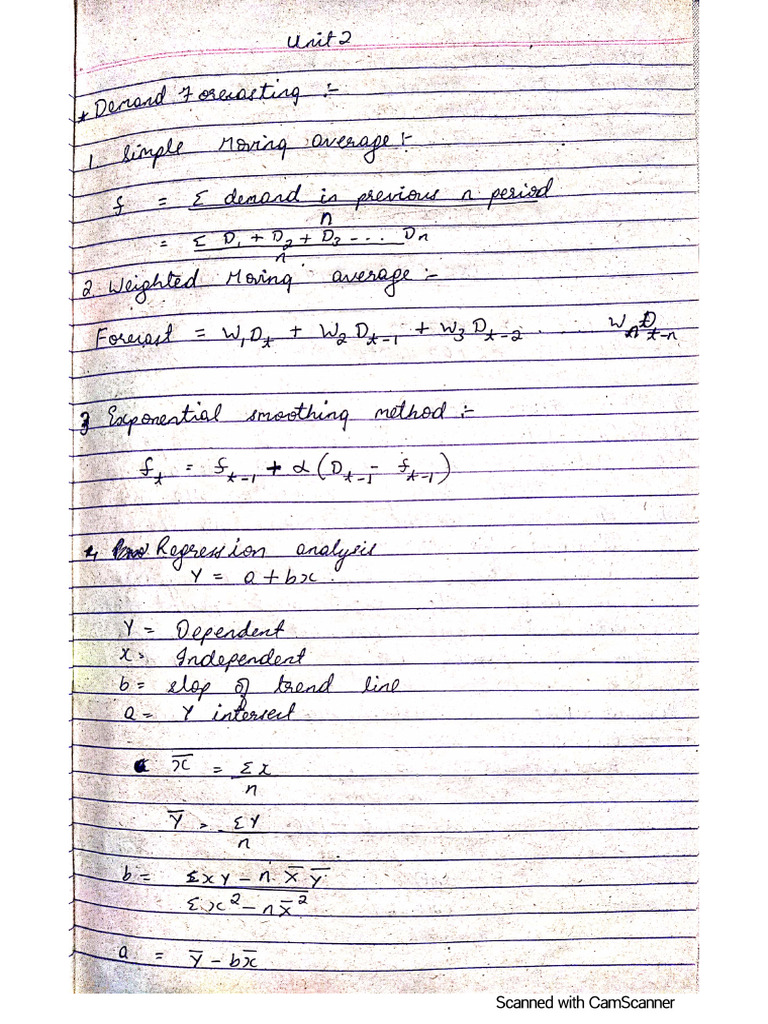 Unit 2
* Demand Forecasting :-
1 Simple Moving average :-
f = Σ demand in previous n period
n
= Σ D1 + D2 + D3 - ... Dn
n
2. Weighted Moving average :-
Forecast = W1Dt + W2 Dt-1 + W3 Dt-2 ......
3 Exponential smoothing method :-
ft = ft-1 + α (Dt-1 - ft-1)
4 Regression analysis
Y = a + bx
Y = Dependent
x = Independent
b = slop of trend line
a = Y intersect
x̄ = Σx
n
Ȳ = ΣY
n
b = Σxy - n x̄ Ȳ
Σx² - nx̄²
a = Ȳ - bx̄
Scanned with CamScanner